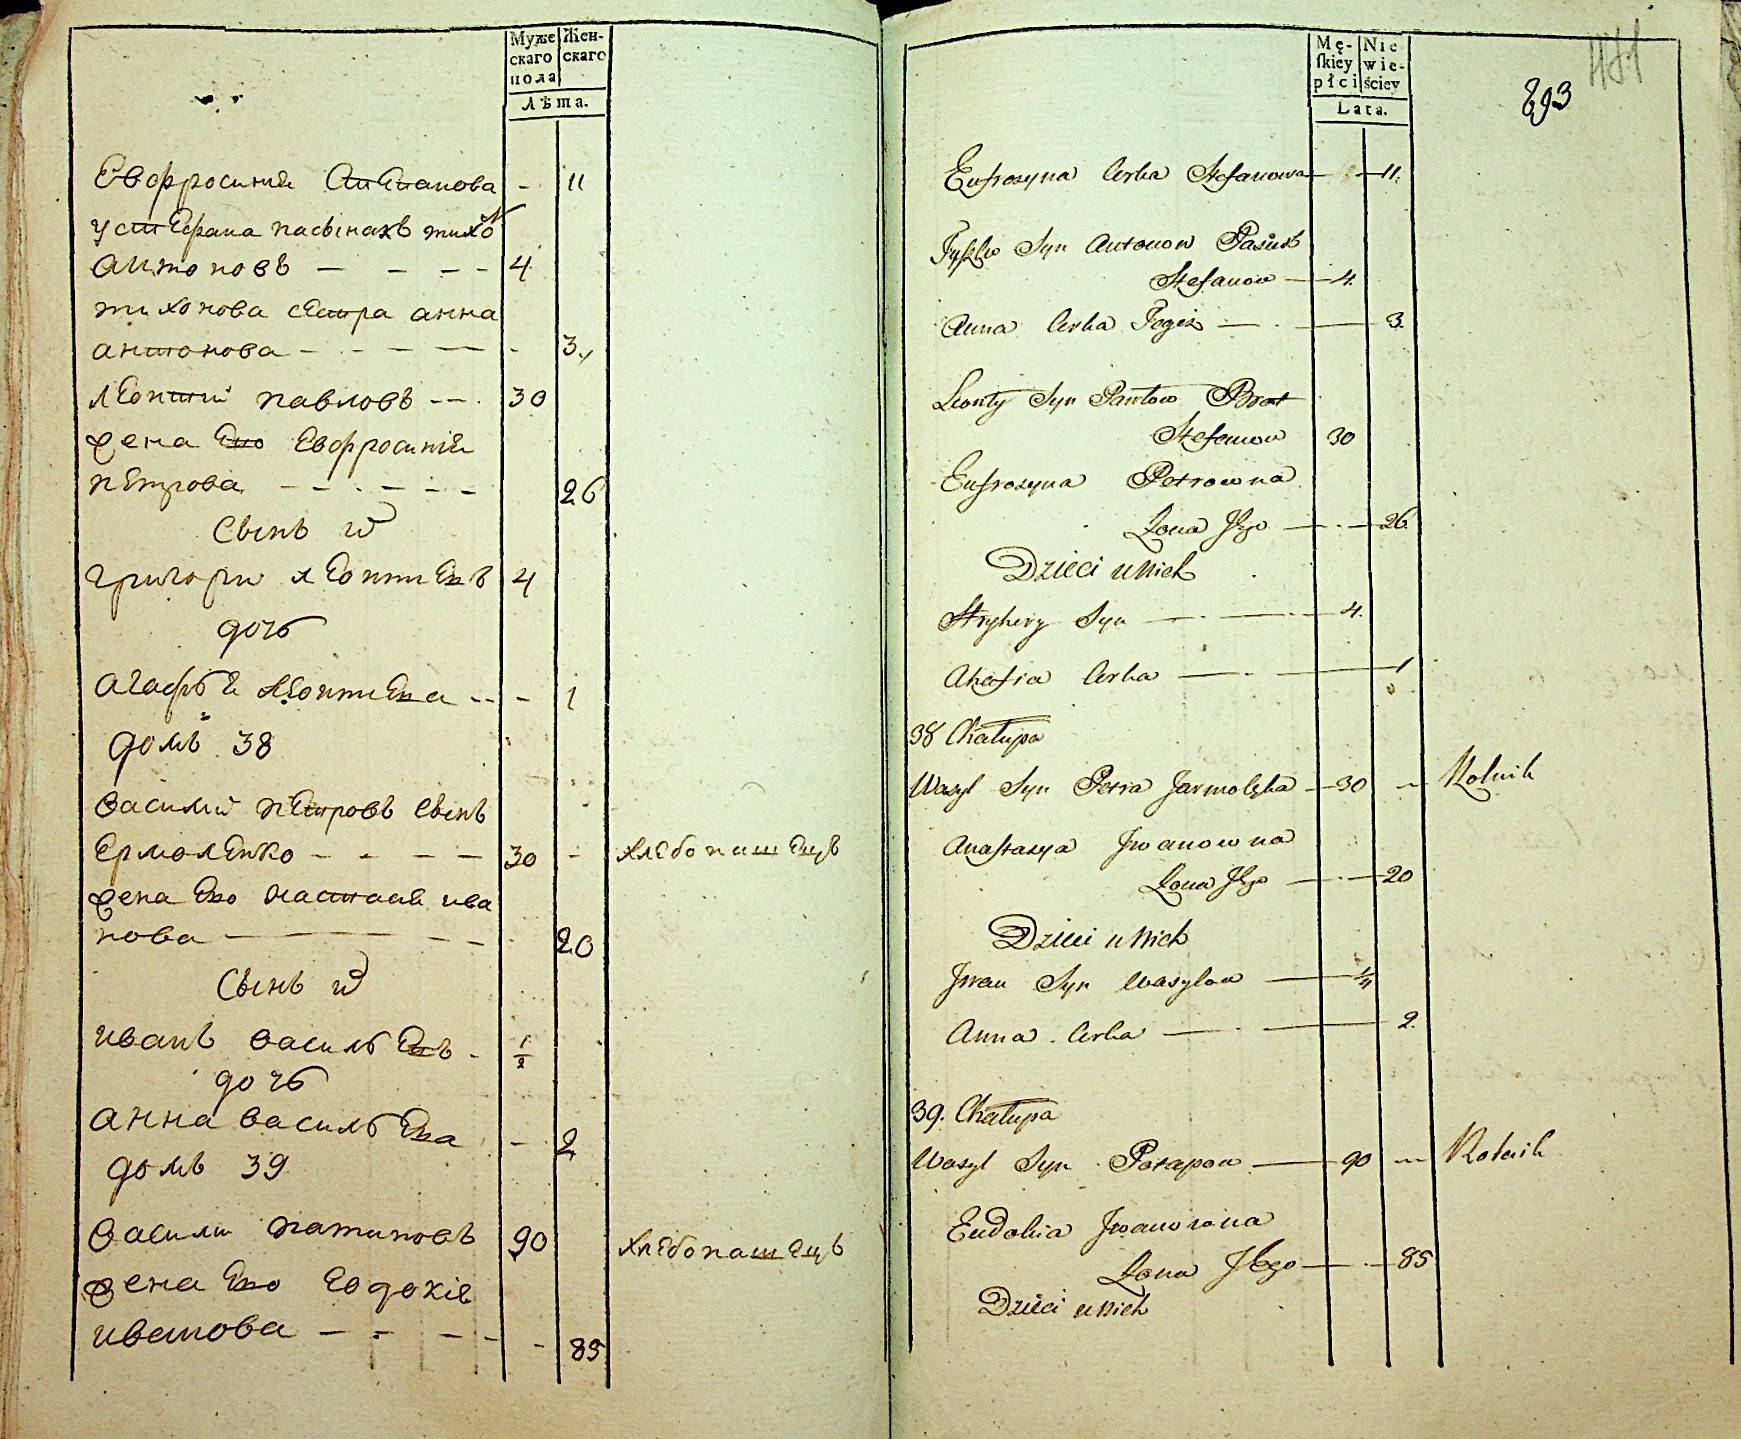 Муже
скаго
пола
Жен-
скаго
Лѣта.
Евфросинія Степанова - 11
у стефана пасынакъ тихо
антоновъ - - - - 4
тихонова сестра анна
антонова - - - - - 3
леонтий павловъ - - 30
жена его Евфросинія
петрова - - - - - 26
Сынъ
григори леонтиевъ 4
дочь
агафья леонтиева - - - 1
домъ 38
василий петровъ сынъ
ермоленко - - - - 30 - хлебопашецъ
жена его настасия ива
нова - - - 20
Сынъ
иванъ васильевъ - 1/2
дочь
анна васильева - 2
домъ 39
василии 90 хлебопашецъ
жена его евдокия
иванова - - - - - 85
Mę-
skiey
płci
Nie
wie-
ściey
Lata.
893
Eufrozyna Corka Stefanowa — 11.
Syn Antonow Pasierb
Stefanow — 4.
Anna Corka Tegoż — 3.
Leonty Syn Pawłow Brat
Stefanow 30
Eufrozyna Petrowna
Żona Jego — 26.
Dzieci u Nich
Hryhory Syn — 4.
Ahafia Corka — 1
38 Chałupa
Wasyl Syn Petra Jarmolęka — 30 — Rolnik
Anastazya Jwanowna
Żona Jego — 20
Dzieci u Nich
Jwan Syn Wasylow —
Anna Corka — 2.
39. Chałupa
Wasyl Syn Potapow — 90 — Rolnik
Eudokia Jwanowna
Żona Jego — 85
Dzieci u Nich